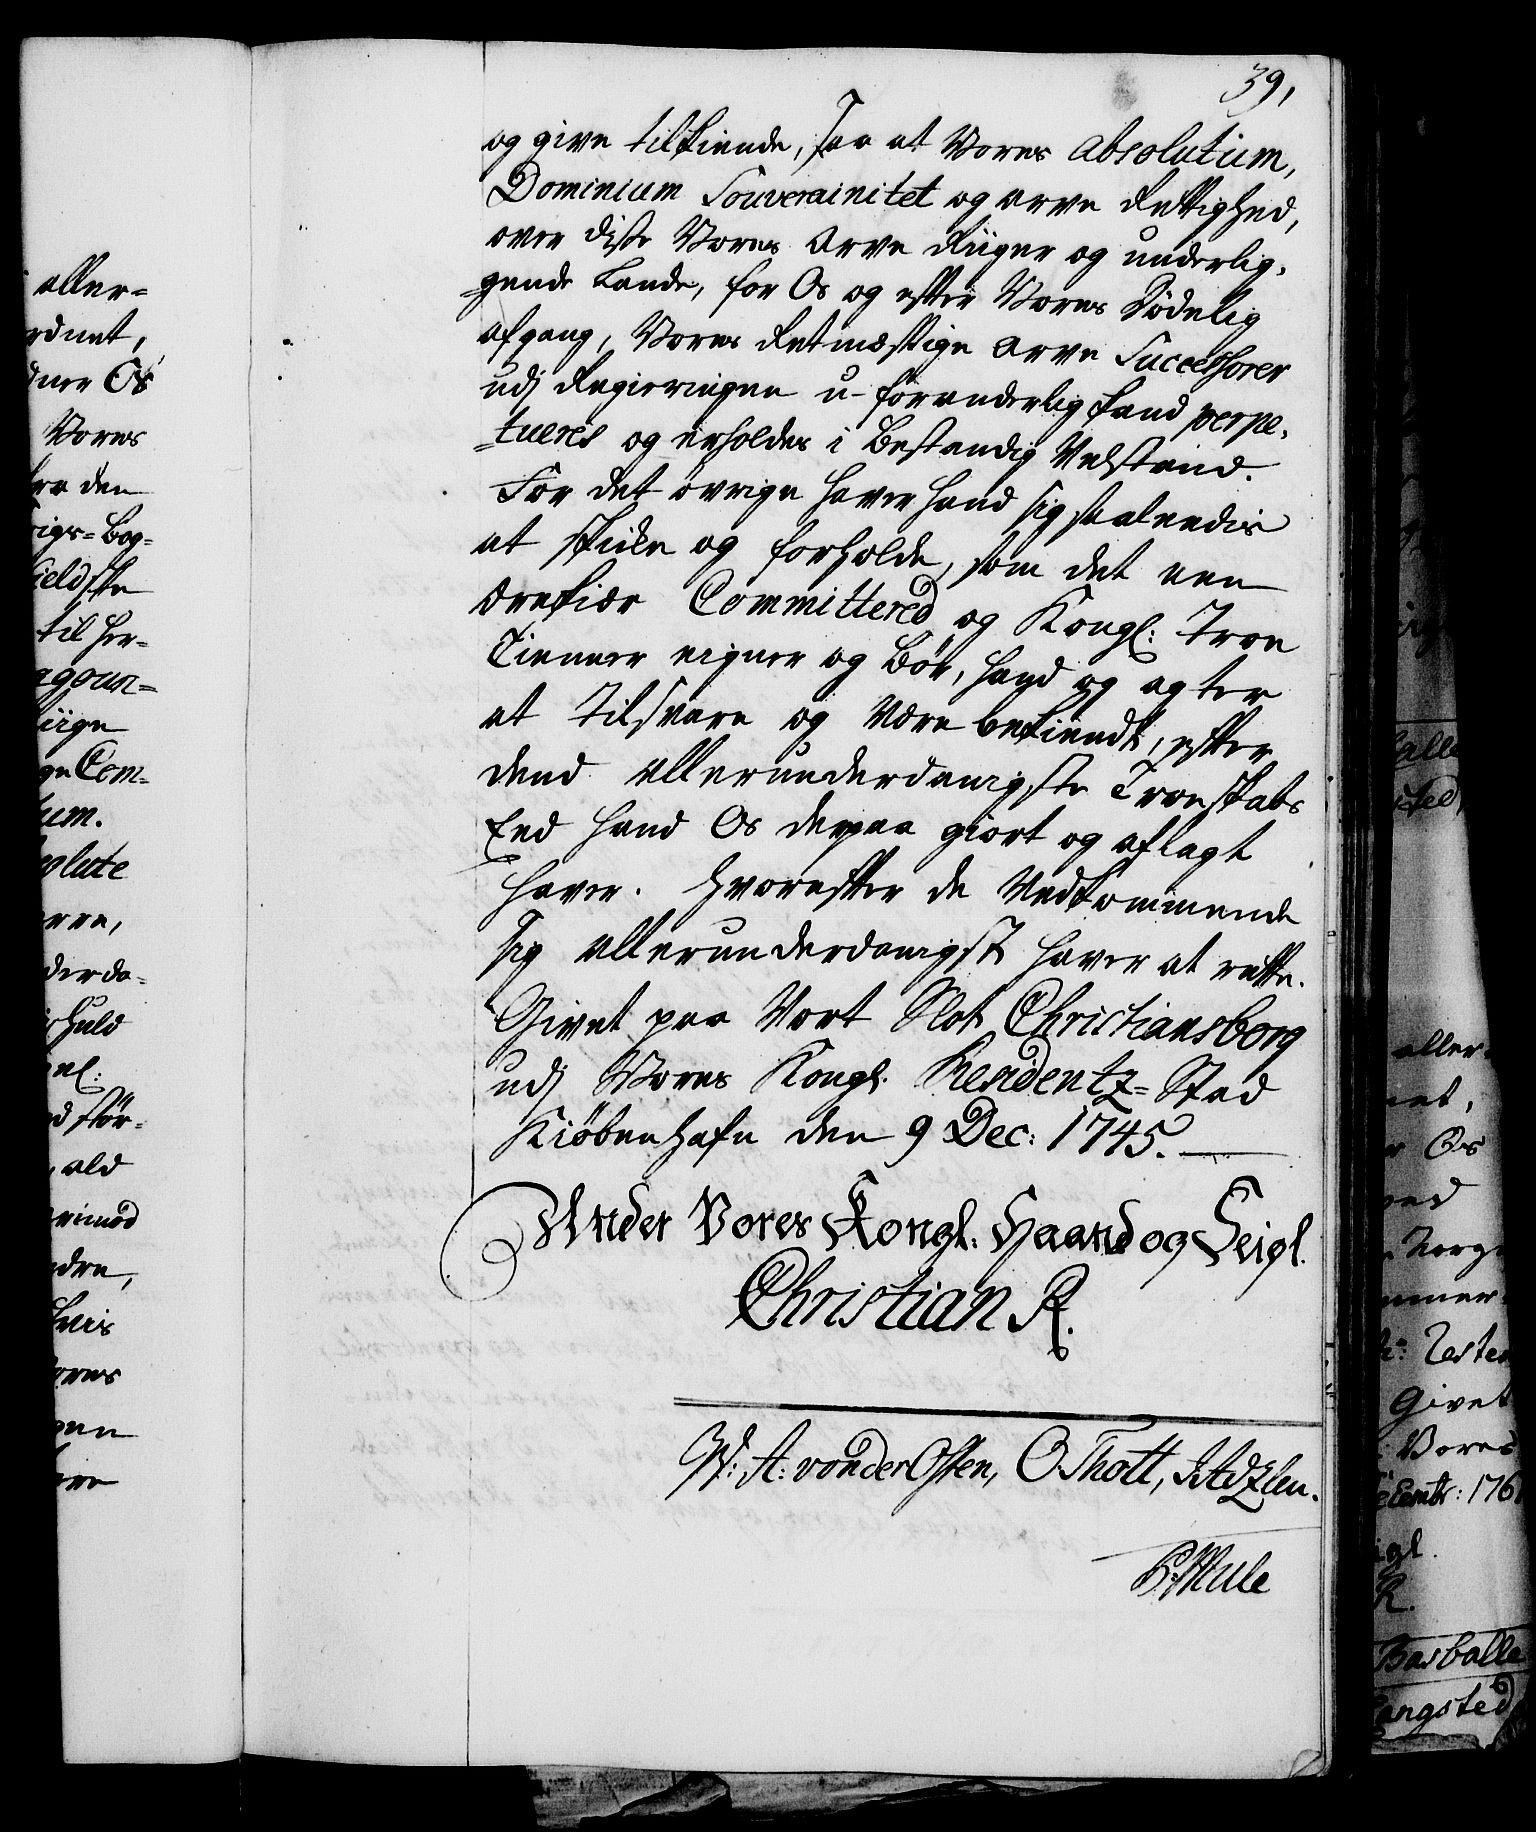 39,
og give tilkiende, saa at Vores Absolutum,
Dominium Souverainitet og arve Rettighed,
over disse Vores Arve Riiger og underlig,
gende Lande, for Os og efter Vores Dödelig
afgang, Vores Retmæssige Arve Successorer
udj Regieringen u-foranderlig kand perpe,
tueres og erholdes i Bestandig Velstand.
For det övrige haver hand sig saaleedis
at skicke og forholde, som det een
ærekier Committered og Kongl: Troe
Tienner eigner og bör, hand og agter
at tilsvare og være bekiendt, efter
dend allerunderdanigste Troeskabs
Eed hand Os derpaa giort og aflagt
haver. Hvorefter de Vedkommende
sig allerunderdanigst haver at rette.
Givet paa Vort Slot Christiansborg
udj Vores Kongl. Residentz-Stad
Kiöbenhafn den 9 Dec: 1745.
Under Vores Kongl: Haand og Seigl.
Christian R.
W: A: von der Osten, O Thott,
Mule
aller=
rdnet,
Os
Vores
fra den
rigs=Bog=
ield ske
til her=
agoun=
iige
Com=
um.
solute
erre,
derda=
huld
nel:
stör=
ald
dre,
ores
aller
net,
Os
ved
Norge
Givet
Vores
ecembr: 176
igl.
R.
Barballe
angsted